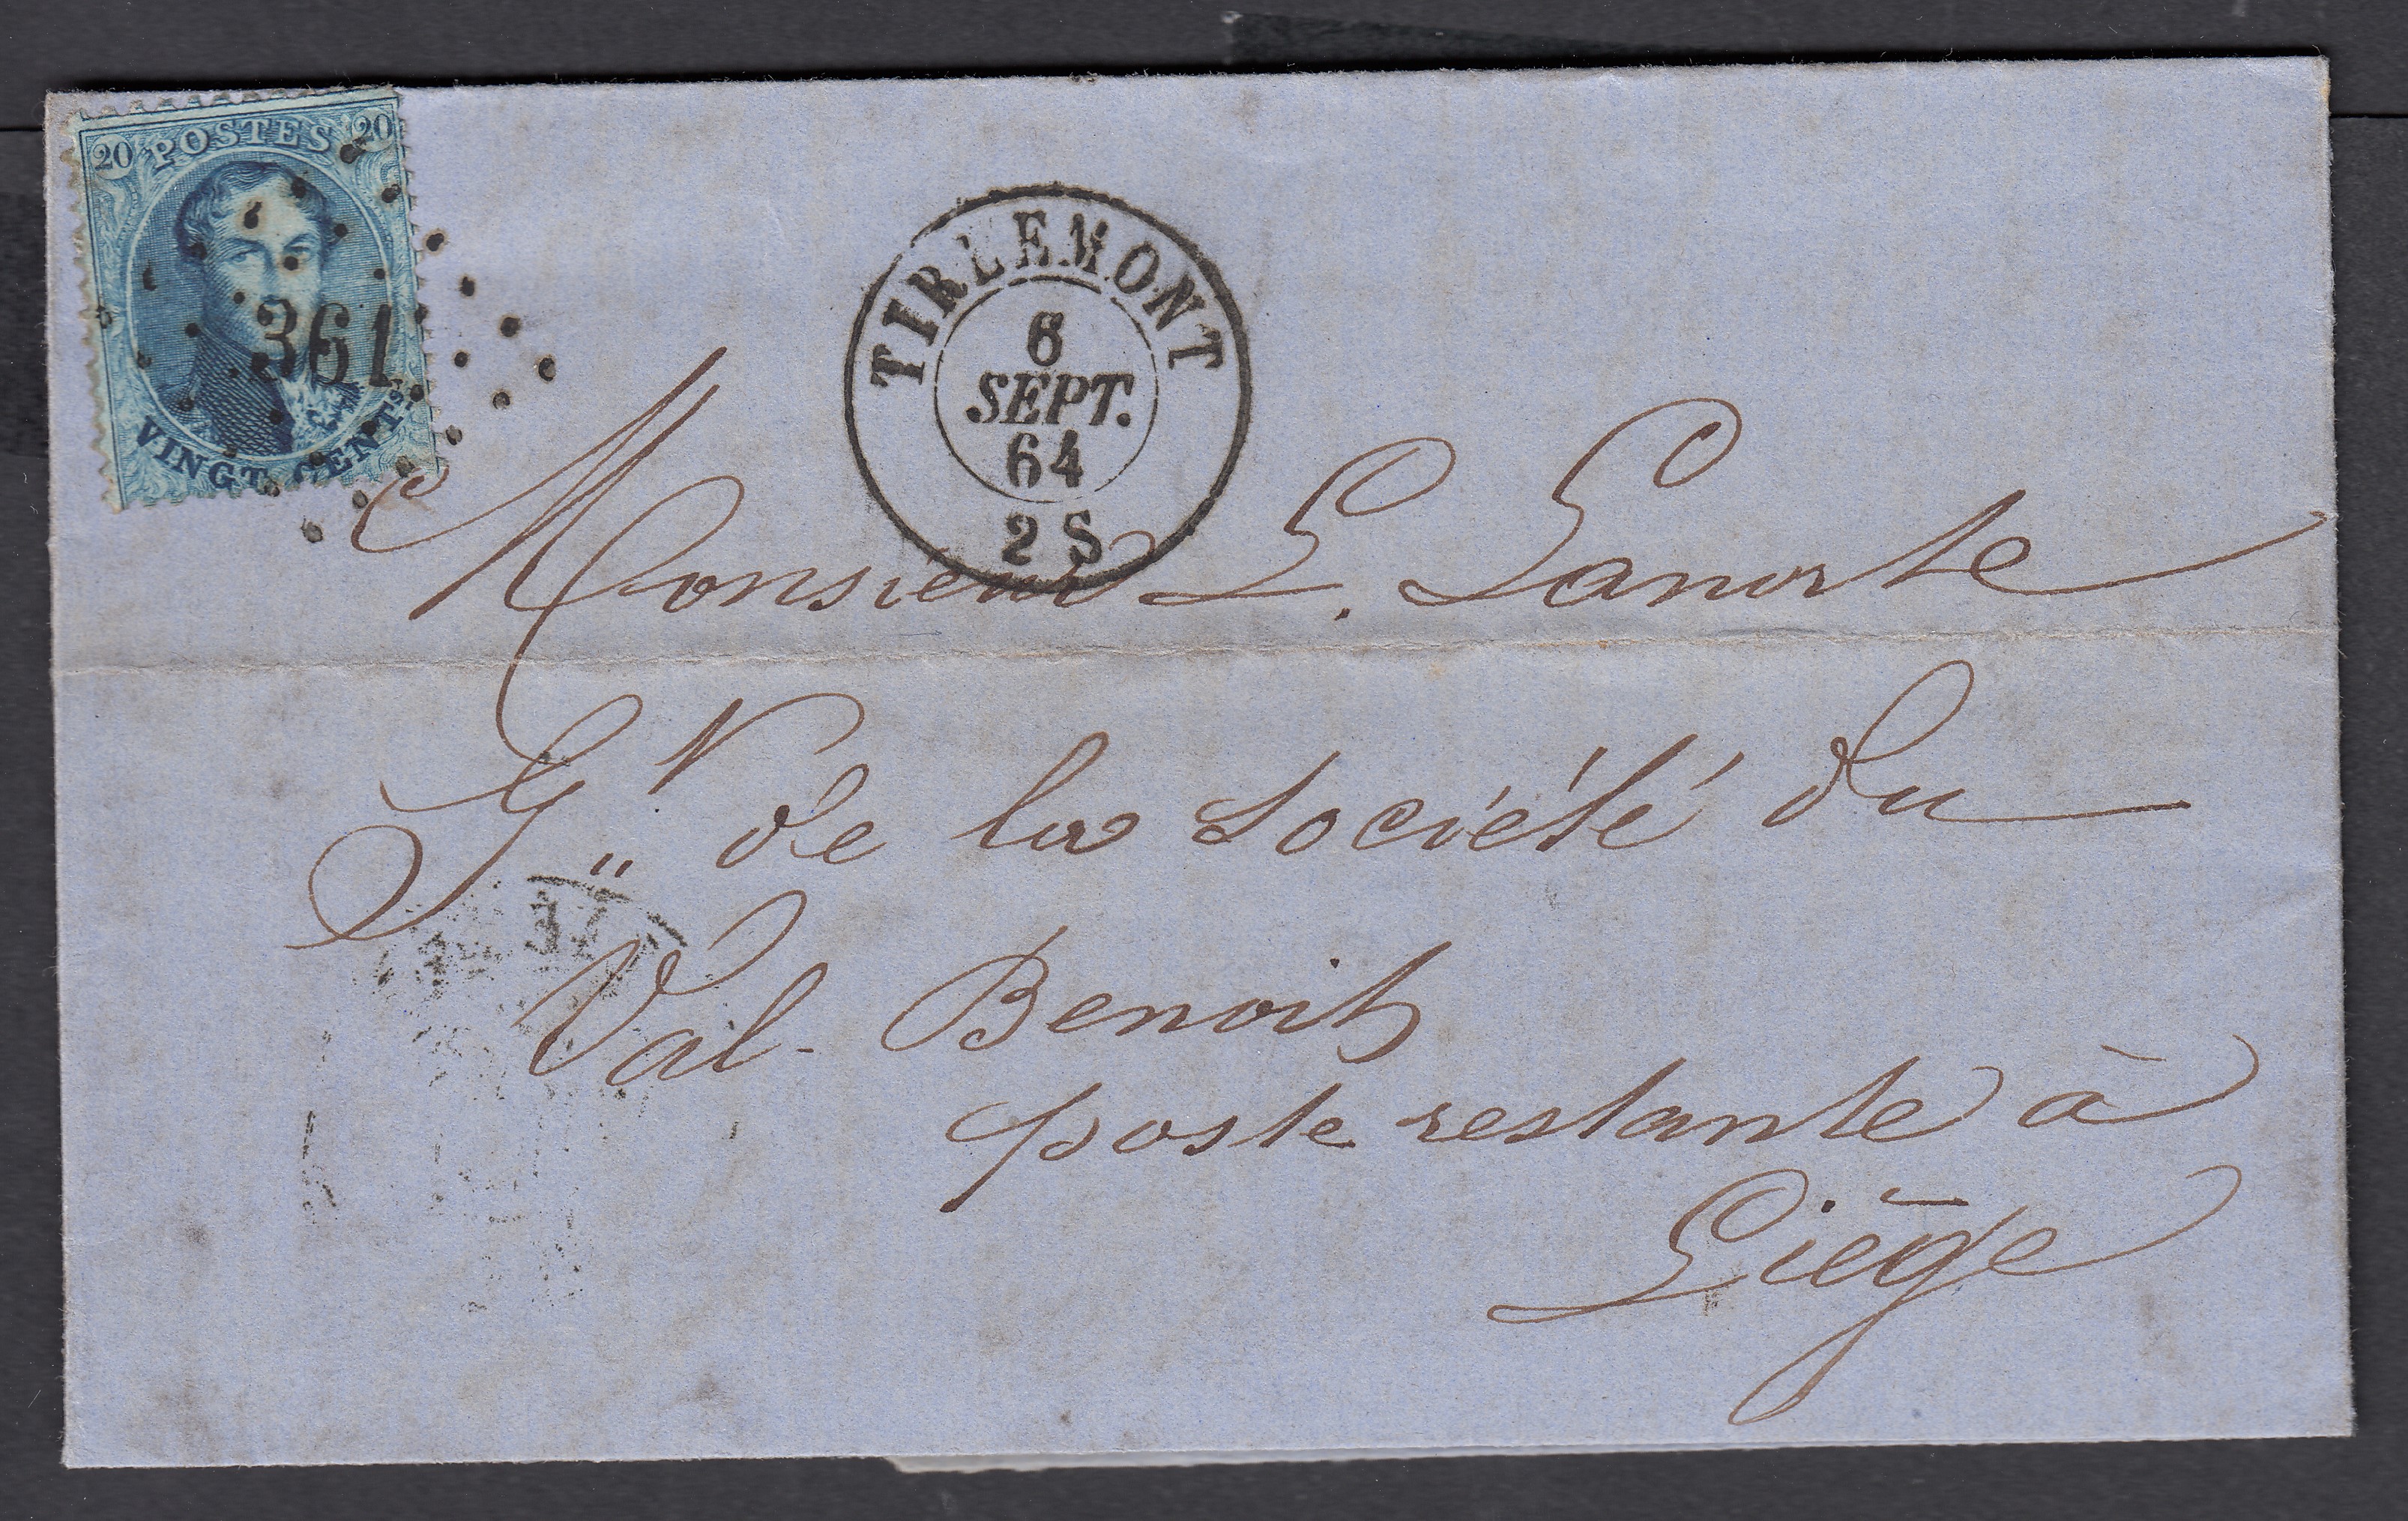 20 POSTES 20
361
VINGT CENTS
TIRLEMONT
6
SEPT.
64
2 S
Monsieur L. Lanorte
G" de la Société du
Val-Benoit
poste restante à
Liége